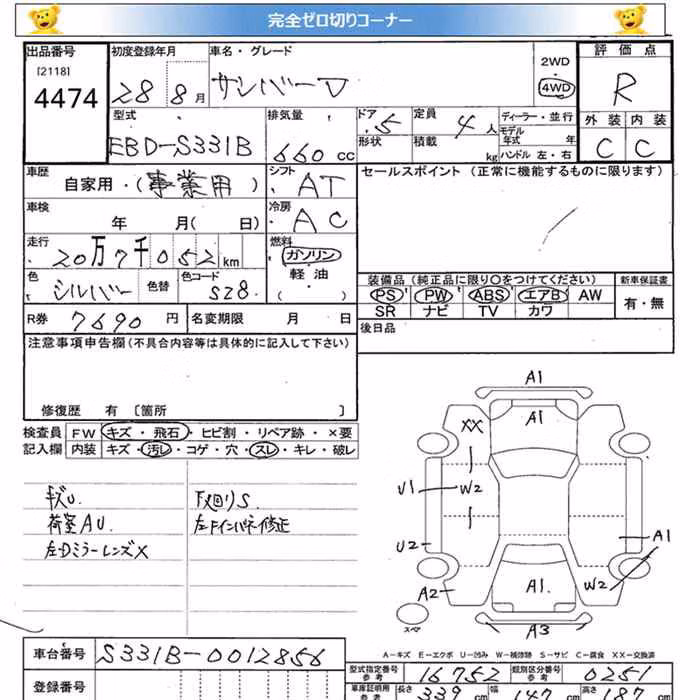 完全ゼロ切りコーナー
出品番号
[2118]
4474
初度登録年月
28 8月
車名・グレード
サンバーV
2WD
4WD
評価点
R
型式
EBD-S331B
排気量
660 cc
ドア
5
形状
定員
4人
積載
kg
ディーラー・並行
モデル年式 年
ハンドル 左・右
外装 内装
C C
車歴
自家用・(事業用)
シフト
AT
セールスポイント (正常に機能するものに限ります)
車検
年 月( 日)
冷房
AC
走行
20万7千052km
燃料
ガソリン
軽油
( ・ )
色
シルバー
色替
色コード
S28
装備品 (純正品に限り〇をつけてください)
新車保証書
PS PW ABS エアB AW
有・無
SR ナビ TV カワ
R券 7690円
名変期限 月 日
後日品
注意事項申告欄(不具合内容等は具体的に記入して下さい)
修復歴 有 [箇所 ]
検査員
記入欄
FW キズ・飛石・ヒビ割・リペア跡・×要
内装 キズ・汚レ・コゲ・穴・スレ・キレ・破レ
キズU.
荷室AU.
左Dミラーレンズ×
下廻りS.
左Fインパネ修正
A1
A1
XX
U1
W2
U2
A1
A2
A1.
W2
A3
スペア
A－キズ E－エクボ U－凹み W－補修跡 S－サビ C－腐食 XX－交換済
車台番号
S331B-0012856
登録番号
型式指定番号
参考
16752
類別区分番号
参考
0251
車庫証明用
参考
長さ
339 cm
幅
147 cm
高さ
187 cm